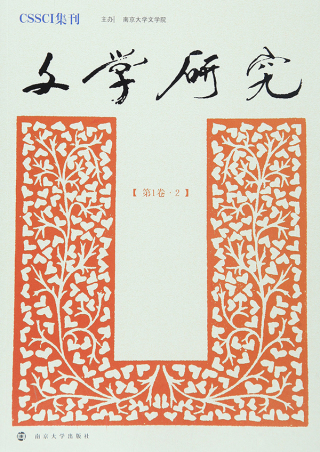 CSSCI集刊 主办| 南京大学文学院
文学研究
【第1卷·2】
南京大学出版社